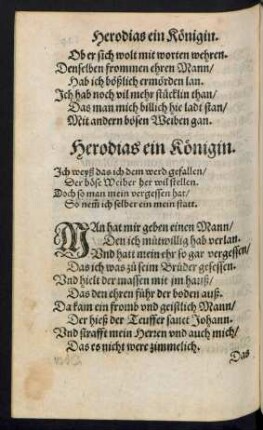 Herodias ein Königin.
Ob er sich wolt mit worten wehren.
Denselben frommen ehren Mann/
Hab ich bößlich ermörden lan.
Ich hab noch vil mehr stücklin than/
Das man mich billich hie ladt stan/
Mit andern bösen Weiben gan.
Herodias ein Königin.
Ich weyß das ich dem werd gefallen/
Der böse Weiber her wil stellen.
Doch so man mein vergessen hat/
So nem̃ ich selber ein mein statt.
MAn hat mir geben einen Mann/
Den ich mütwillig hab verlan.
Vnd hatt mein ehr so gar vergessen/
Das ich was zů seim Brůder gesessen.
Vnd hielt der massen mit jm hauß/
Das den ehren fůhr der boden auß.
Da kam ein fromb vnd geistlich Mann/
Der hieß der Teuffer sanct Johann.
Vnd strafft mein Herren vnd auch mich/
Das es nicht were zimmelich.
Das